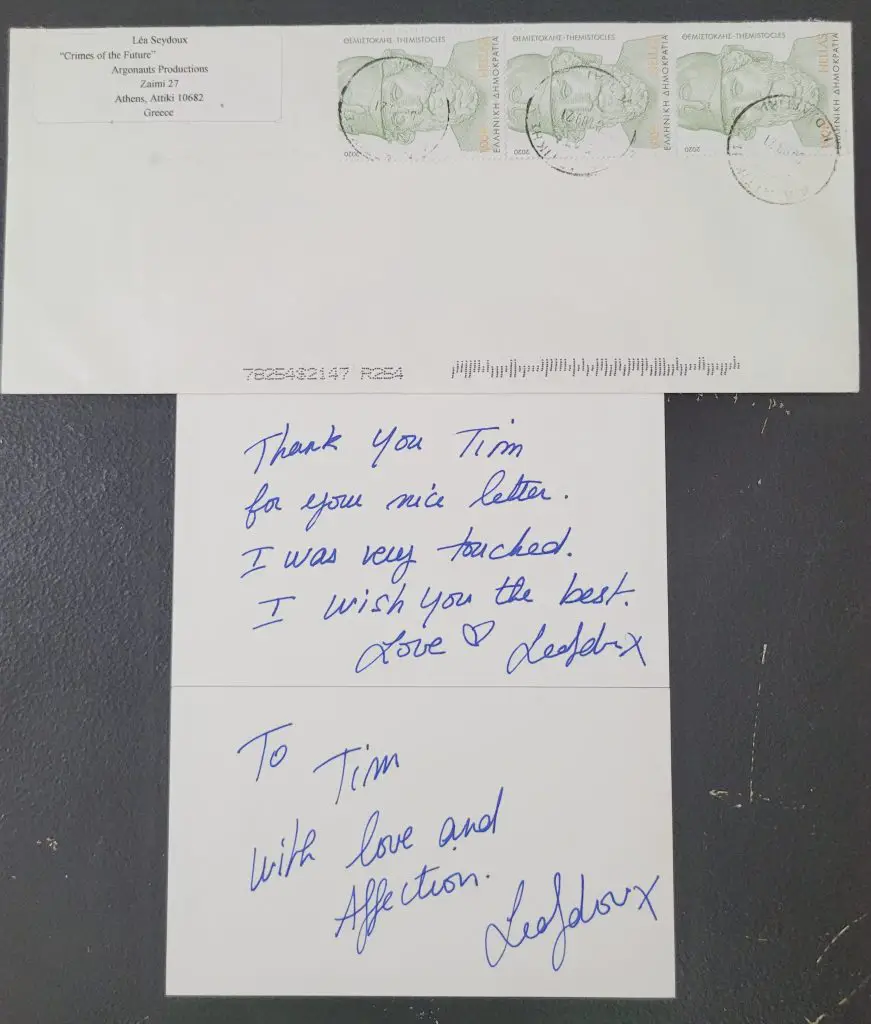 Léa Seydoux
"Crimes of the Future"
Argonauts Productions
Zaimi 27
Athens, Attiki 10682
Greece
ΘΕΜΙΣΤΟΚΛΗΣ · THEMISTOCLES
ΕΛΛΗΝΙΚΗ ΔΗΜΟΚΡΑΤΙΑ
HELLAS
2020
ΘΕΜΙΣΤΟΚΛΗΣ · THEMISTOCLES
ΕΛΛΗΝΙΚΗ ΔΗΜΟΚΡΑΤΙΑ
HELLAS
2020
ΘΕΜΙΣΤΟΚΛΗΣ · THEMISTOCLES
ΕΛΛΗΝΙΚΗ ΔΗΜΟΚΡΑΤΙΑ
HELLAS
2020
78254$2147 R254
Thank you Tim
for your nice letter.
I was very touched.
I wish you the best.
Love ♡ LeaSeydoux
To
Tim
with love and
Affection.
LeaSeydoux